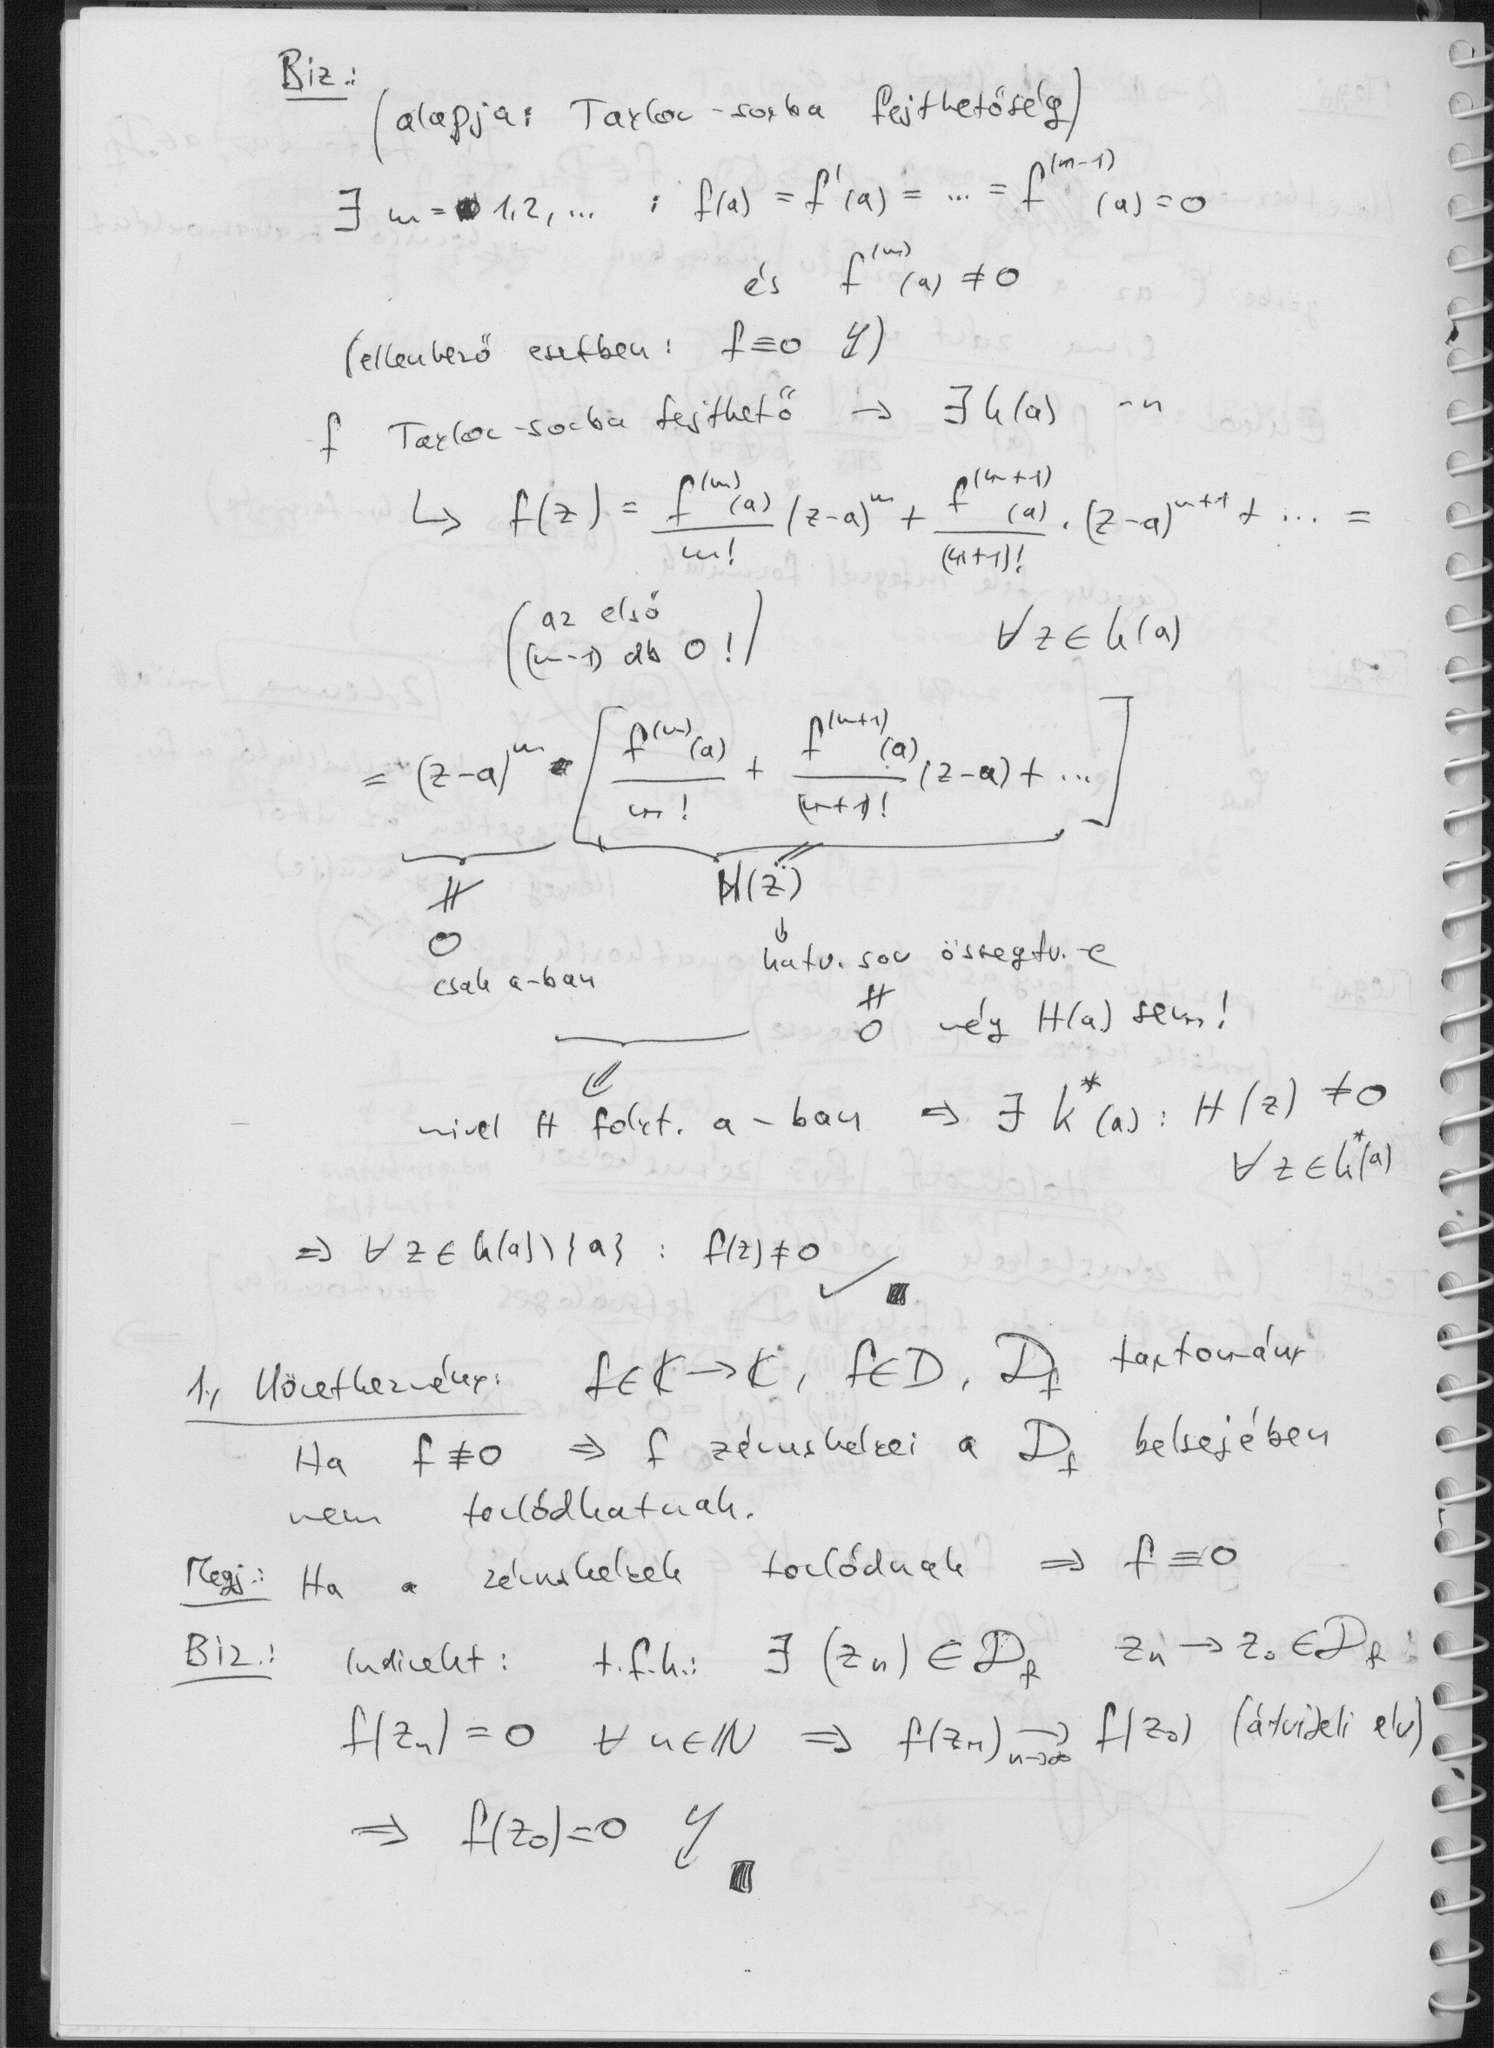 Biz.:
(alapja: Taylor-sorba fejthetőség)
∃ m = 1,2, ... : f(a) = f'(a) = ... = f^(m-1)(a) = 0
és f^(m)(a) ≠ 0
(ellenkező esetben: f≡0 ↯)
f Taylor-sorba fejthető → ∃ k(a) -n
↳ f(z) = f^(m)(a)/m! (z-a)^m + f^(m+1)(a)/(m+1)! · (z-a)^(m+1) + ... =
(az első (m-1) db 0!) ∀ z ∈ k(a)
= (z-a)^m · [f^(m)(a)/m! + f^(m+1)(a)/(m+1)! (z-a) + ...]
∦ H(z)
0 ↓
csak a-ban hatv. sor összegfv.-e
∦
0 még H(a) sem!
mivel H folyt. a-ban ⇒ ∃ k*(a) : H(z) ≠ 0
∀ z ∈ k*(a)
⇒ ∀ z ∈ k(a)\{a} : f(z) ≠ 0 ✓ ■
1., Következmény: f∈K→K, f∈D, D_f tartomány
Ha f≢0 ⇒ f zérushelyei a D_f belsejében
nem torlódhatnak.
Megj.: Ha a zérushelyek torlódnak ⇒ f≡0
Biz.: Indirekt: t.f.h.: ∃ (z_n) ∈ D_f z_n → z_0 ∈ D_f :
f(z_n) = 0 ∀ n∈ℕ ⇒ f(z_n) →_(n→∞) f(z_0) (átviteli elv)
⇒ f(z_0)=0 ↯ ■